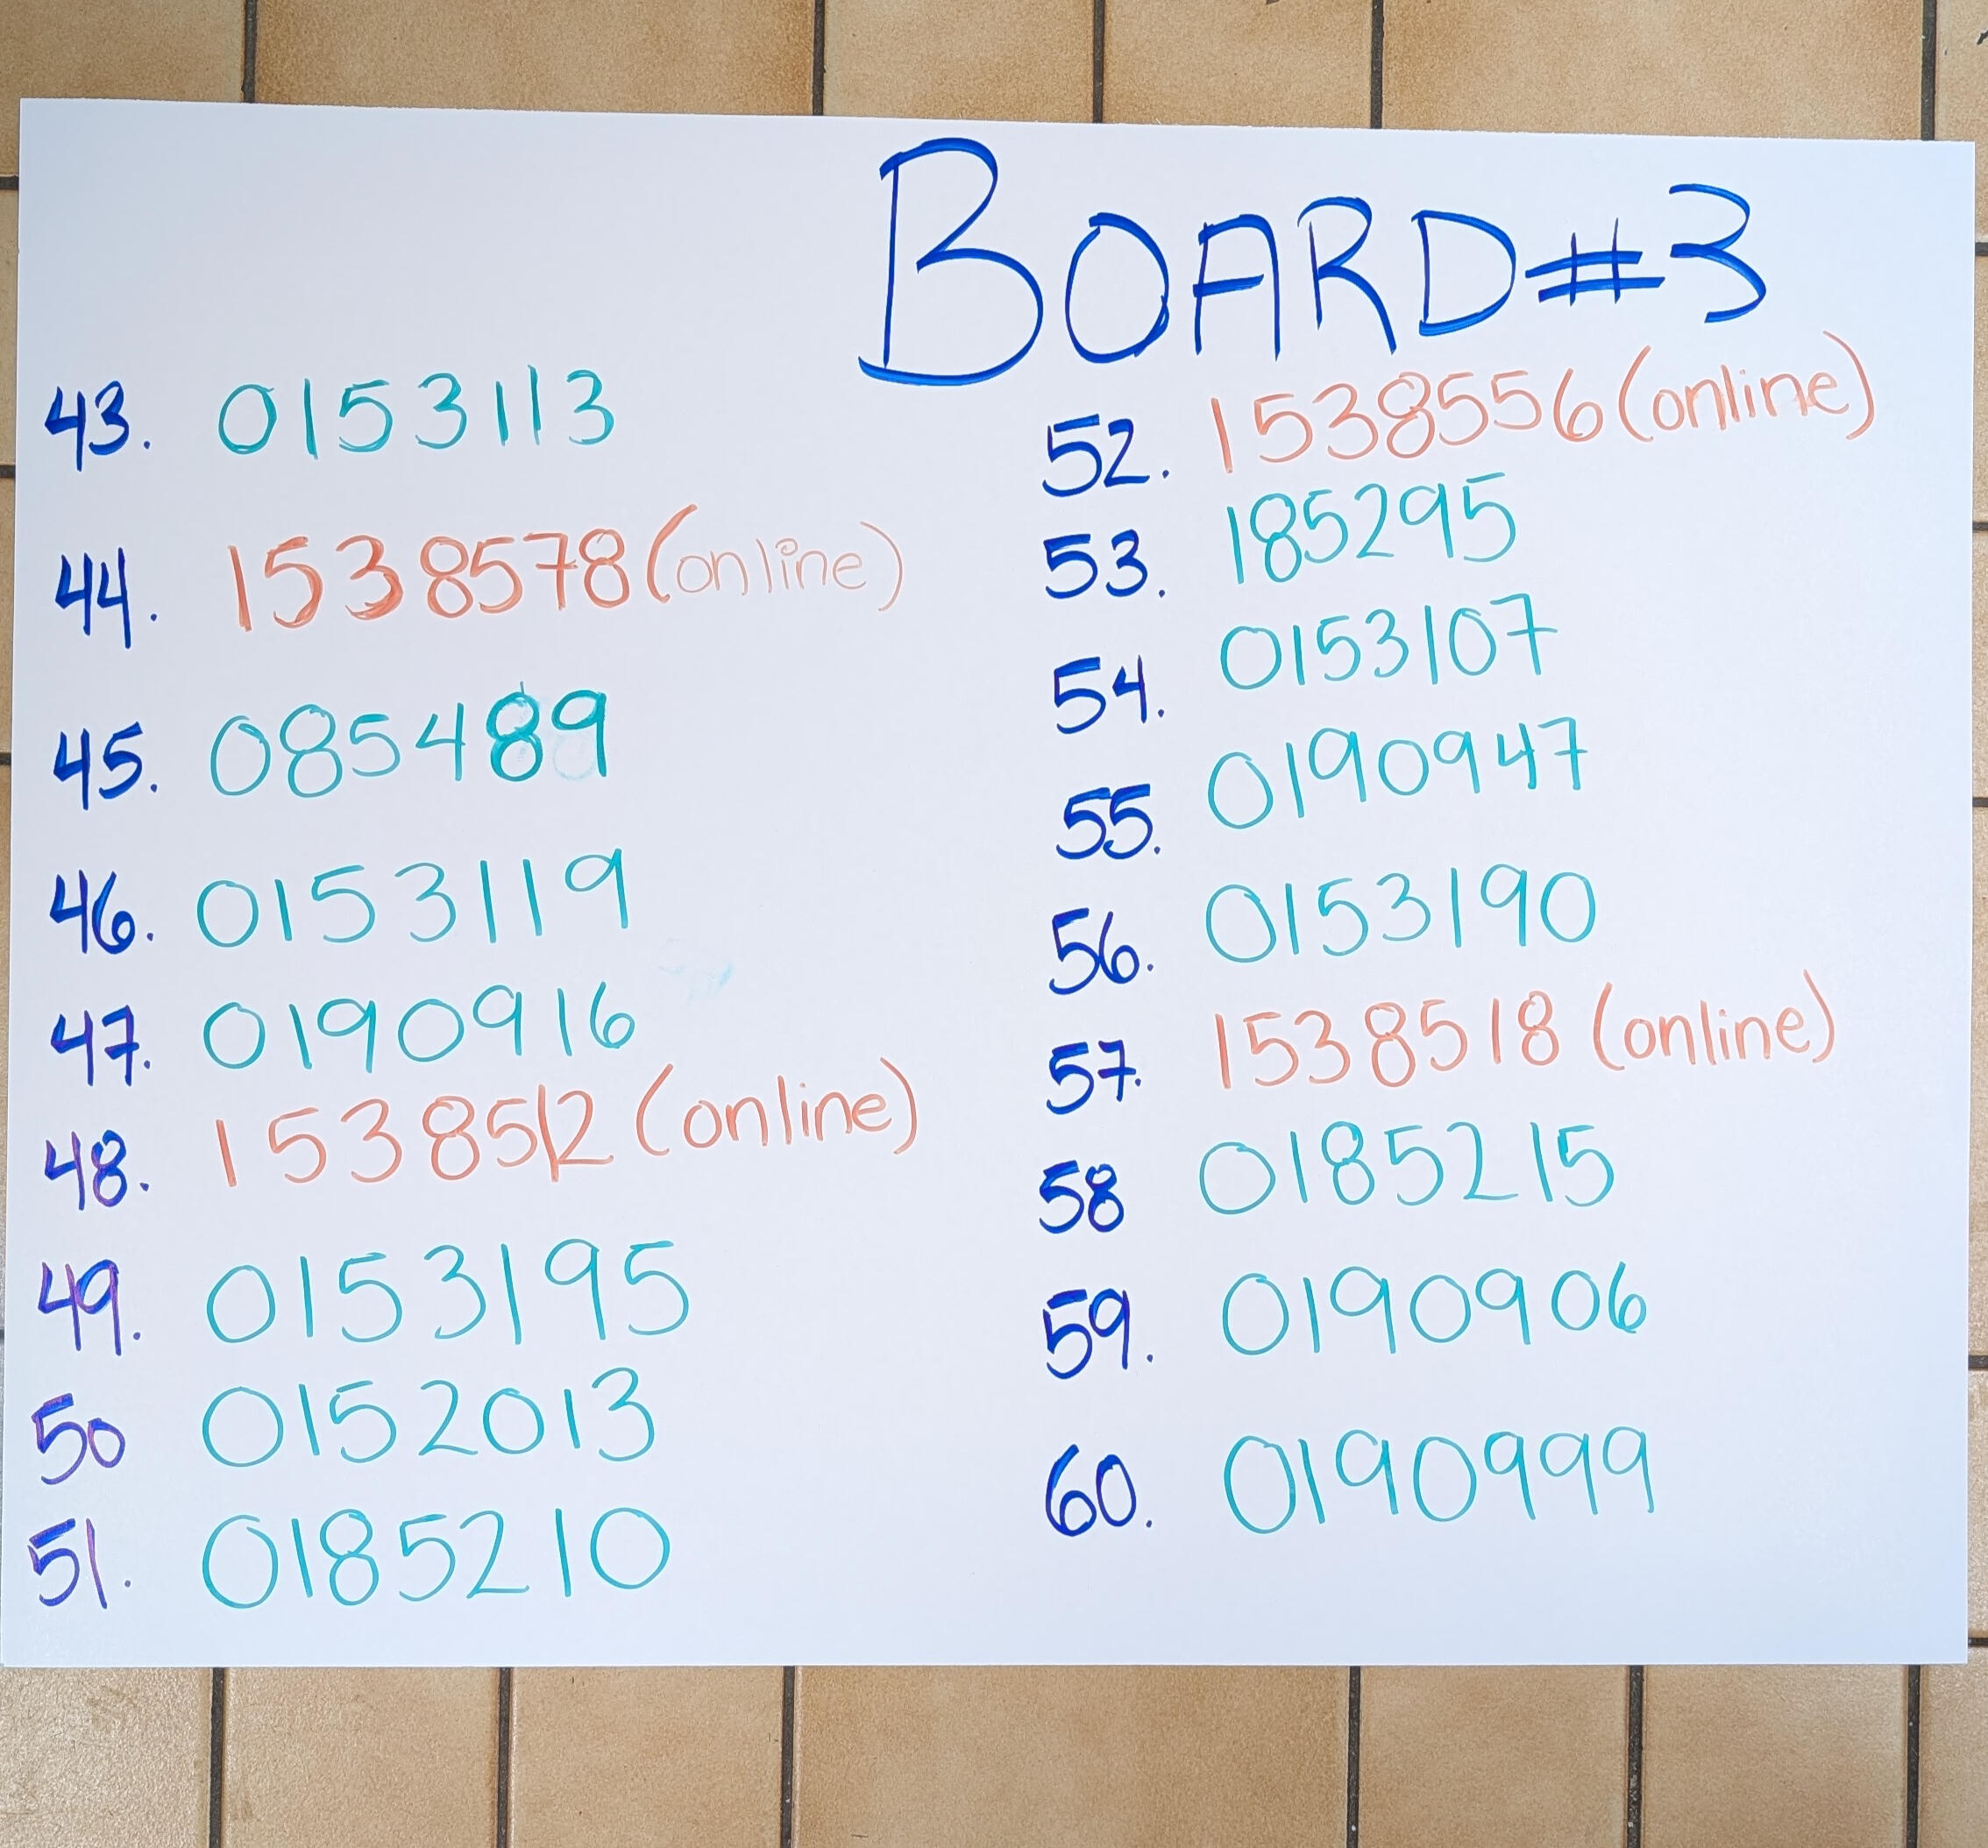 BOARD #3
43. 0153113
44. 1538578 (online)
45. 085489
46. 0153119
47. 0190916
48. 1538512 (online)
49. 0153195
50 0152013
51. 0185210
52. 1538556 (online)
53. 185295
54. 0153107
55. 0190947
56. 0153190
57. 1538518 (online)
58 0185215
59. 0190906
60. 0190999